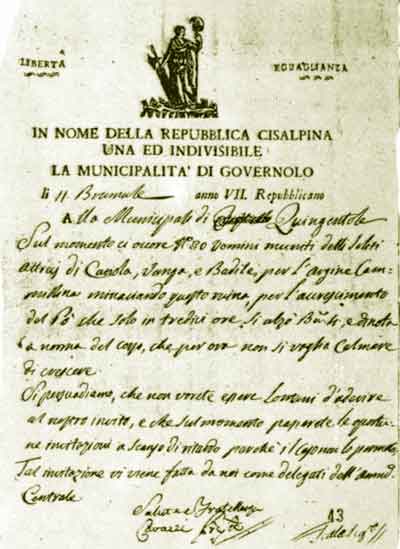 LIBERTÀ
EGUAGLIANZA
IN NOME DELLA REPUBBLICA CISALPINA
UNA ED INDIVISIBILE
LA MUNICIPALITA' DI GOVERNOLO
li 11 Brumale anno VII. Repubblicano
Alla Municipale di Quingentole
Sul momento ci ocore N° 80 Uomini muniti delli soliti
attraj di Cariola, Vanga, e Badile, per l'argine Cam-
millina minaciando questo ruina, per l'acrescimento
del Pò che solo in tredici ore si alzò e dinota
la norma del corso, che per ora non si voglia Calmare
di crescere
Si persuadiamo, che non vorete essere lontani d'aderire
al nostro invito, e che sul momento passarete le oportu-
ne invitazioni a scanzo di ritardo perchè il caso non lo permette,
Tal invitazione vi viene fatta da noi come delegati dell'Ammi.
Centrale
Salute e Fratellanza
Cavazzi
13